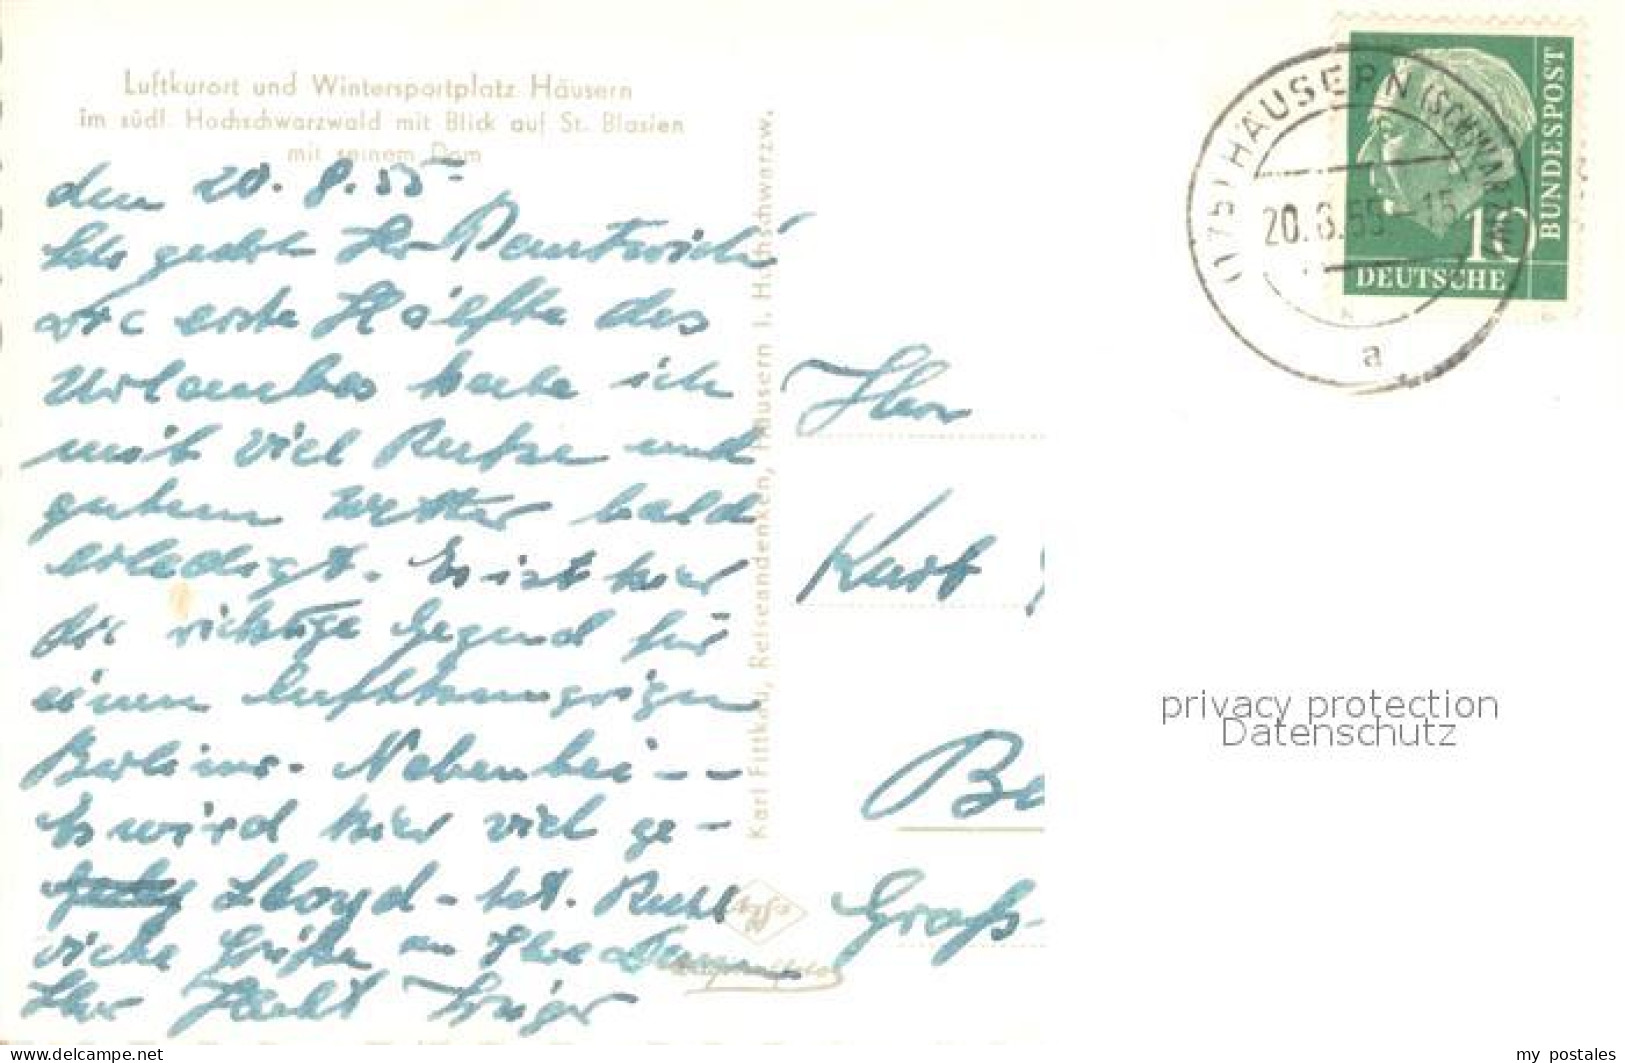 Luftkurort und Wintersportplatz Häusern
im südl. Hochschwarzwald mit Blick auf St. Blasien
mit seinem Dom
den 20.8.55
Sehr geehrter Herr
erste Hälfte des
Urlaubes habe ich
mit viel Ruhe und
gutem Wetter bald
erledigt. Es ist hier
die richtige Gegend für
einen lufthungrigen
Berliner. Nebenbei --
Es wird hier viel ge-
Lloyd
viele Grüße an Ihre
Ihr
Karl Fittkau, Reiseandenken, Häusern i. Hochschwarzw.
Herr
Kurt
Be
Groß-
(17b) HÄUSERN (SCHWARZW)
20.8.55-15
a
10
DEUTSCHE
BUNDESPOST
privacy protection
Datenschutz
www.delcampe.net
my_postales